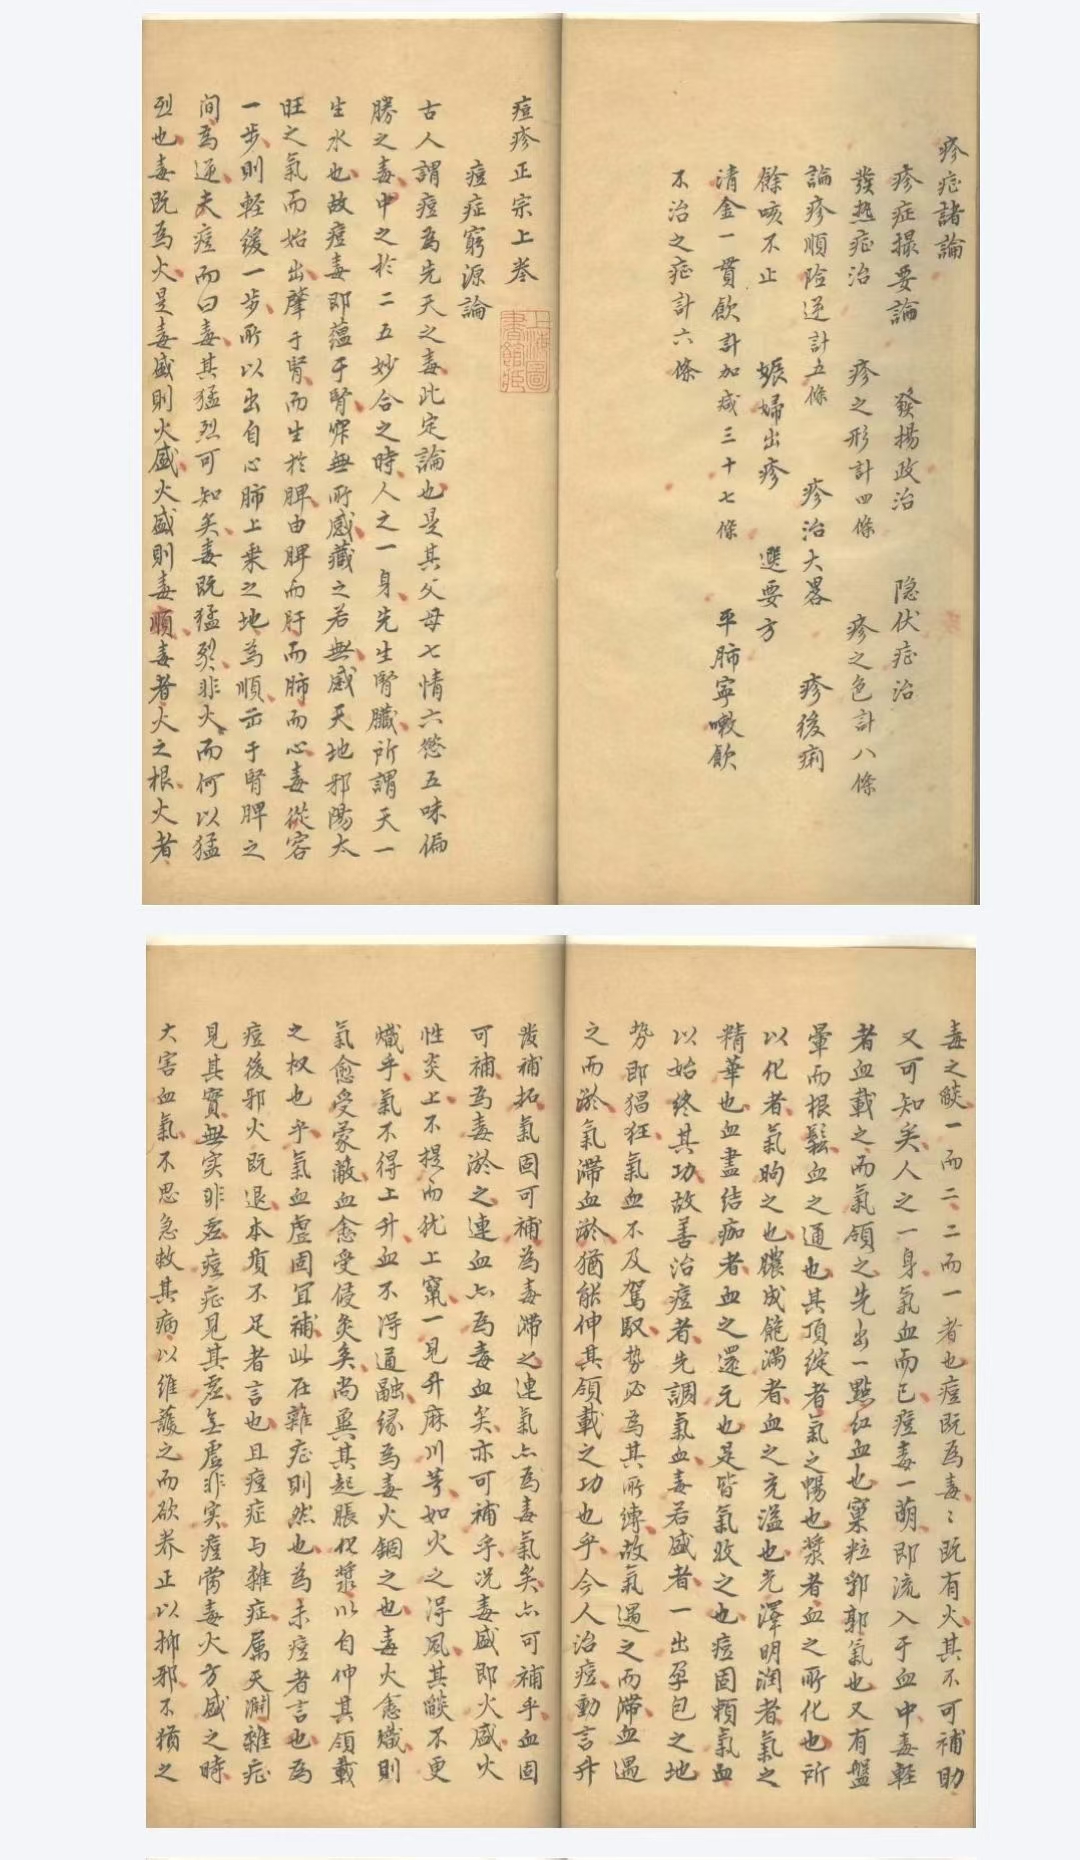 疹症諸論
疹症撮要論 發揚政治 隐伏症治
發热症治 疹之形計四條 疹之色計八條
論疹順险逆計五條 疹治大畧 疹後痢
餘咳不止 娠婦出疹 選要方
清金一貫飲計加减三十七條 平肺寕嗽飲
不治之症計六條
痘疹正宗上卷
上海圖書館藏
痘症窮源論
古人謂痘為先天之毒此定論也是其父母七情六慾五味偏
勝之毒中之於二五妙合之時人之一身先生腎臟所謂天一
生水也故痘毒即蕴于腎窂無所感藏之若無感天地邪陽太
旺之氣而始出肇于腎而生於脾由脾而肝而肺而心毒從容
一步則軽緩一步所以出自心肺上乗之地為順示于腎脾之
间為逆夫痘而曰毒其猛烈可知矣毒既猛烈非火而何以猛
烈也毒既為火是毒盛則火盛火盛則毒順毒者火之根火者
毒之燄一而二二而一者也痘既為毒〻既有火其不可補助
又可知矣人之一身氣血而已痘毒一萌即流入于血中毒軽
者血載之而氣領之先出一點红血也窠粒郛郭氣也又有盤
暈而根鬆血之通也其頂綻者氣之暢也漿者血之所化也所
以化者氣昫之也膿成飽滿者血之充溢也光澤明润者氣之
精華也血盡结痂者血之還元也是皆氣收之也痘固頼氣血
以始终其功故善治痘者先調氣血毒若盛者一出孕包之地
势即猖狂氣血不及駕馭势必為其所縛故氣遇之而滞血遇
之而淤氣滞血淤猶能伸其領載之功也乎今人治痘動言升
发補拓氣固可補為毒滞之連氣亠為毒氣矣亠可補乎血固
可補為毒淤之連血亠為毒血矣亦可補乎况毒盛即火盛火
性炎上不提而犹上竄一見升麻川芎如火之浔風其燄不更
熾乎氣不得上升血不浔通融縁為毒火錮之也毒火愈熾則
氣愈受蒙蔽血愈受侵灸矣尚兾其起脹化漿以自伸其領載
之权也乎氣血虚固宜補此在雜症則然也為未痘者言也為
痘後邪火既退本質不足者言也且痘症与雜症属天渊雜症
見其實無实非虚痘症見其虚無虚非实痘當毒火方盛之時
大害血氣不思急救其病以维護之而欲养正以抑邪不猶之